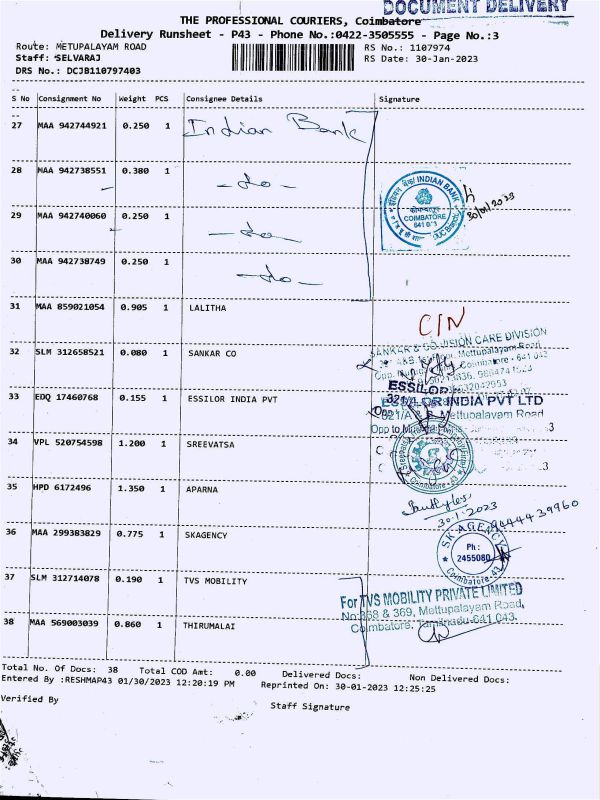 DOCUMENT DELIVERY
THE PROFESSIONAL COURIERS, Coimbatore
Delivery Runsheet - P43 - Phone No.:0422-3505555 - Page No.:3
Route: METUPALAYAM ROAD RS No.: 1107974
Staff: SELVARAJ RS Date: 30-Jan-2023
DRS No.: DCJB110797403
S No Consignment No Weight PCS Consignee Details Signature
27 MAA 942744921 0.250 1 Indian Bank
28 MAA 942738551 0.380 1 -do-
INDIAN BANK
COIMBATORE
30/01/2023
29 MAA 942740060 0.250 1 -do-
30 MAA 942738749 0.250 1 -do-
31 MAA 859021054 0.905 1 LALITHA
C/N
32 SLM 312658521 0.080 1 SANKAR CO
SANKAR & CO VISION CARE DIVISION
Mettupalayam Road
Coimbatore - 641 043
33 EDQ 17460768 0.155 1 ESSILOR INDIA PVT
ESSILOR
ESSILOR INDIA PVT LTD
321/A & B, Mettupalayam Road
34 VPL 520754598 1.200 1 SREEVATSA
Coimbatore-43
35 HPD 6172496 1.350 1 APARNA
30.1.2023
9444439960
36 MAA 299383829 0.775 1 SKAGENCY
SK AGENCY
Ph:
2455080
Coimbatore-43
37 SLM 312714078 0.190 1 TVS MOBILITY
For TVS MOBILITY PRIVATE LIMITED
No.368 & 369, Mettupalayam Road,
Coimbatore, Tamilnadu-641 043.
38 MAA 569003039 0.860 1 THIRUMALAI
Total No. Of Docs: 38 Total COD Amt: 0.00 Delivered Docs: Non Delivered Docs:
Entered By :RESHMAP43 01/30/2023 12:20:19 PM Reprinted On: 30-01-2023 12:25:25
Verified By
Staff Signature